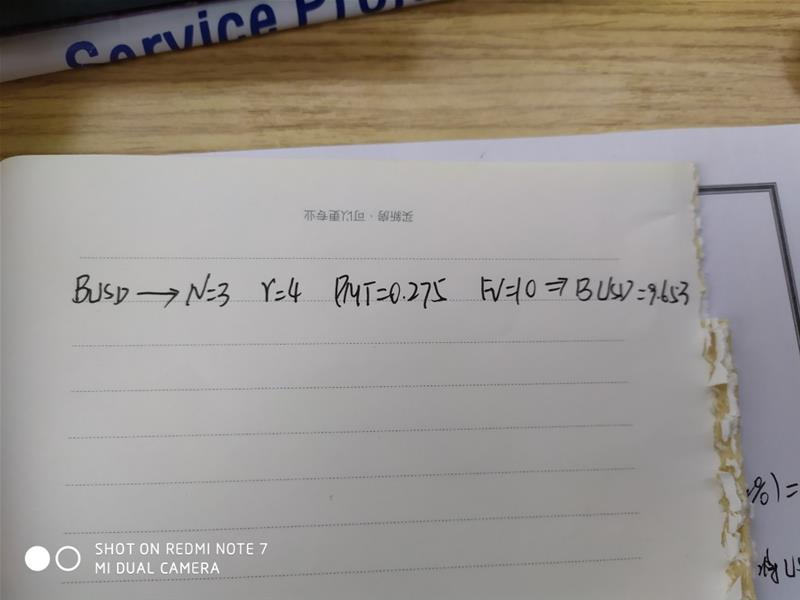 Service
买新房·可以更专业
BUSD → N=3 r=4 PMT=0.275 FV=10 ⇒ BUSD=9.653
%)=
SHOT ON REDMI NOTE 7
MI DUAL CAMERA